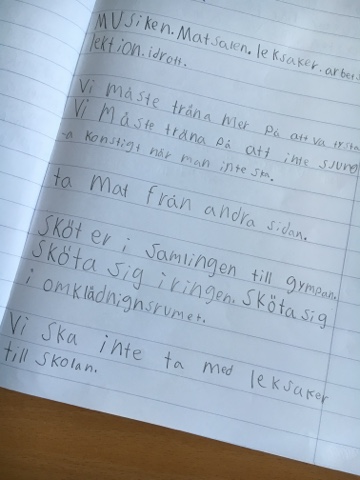 MUsiken. Matsalen. leksaker. arbets
lektion. idrott.
Vi måste träna mer på att va tysta
Vi måste träna på att inte sjung
-a konstigt när man inte ska.
ta mat från andra sidan.
sköt er i samlingen till gympan.
sköta sig i ringen. sköta sig
i omklädnignsrumet.
Vi ska inte ta med leksaker
till skolan.